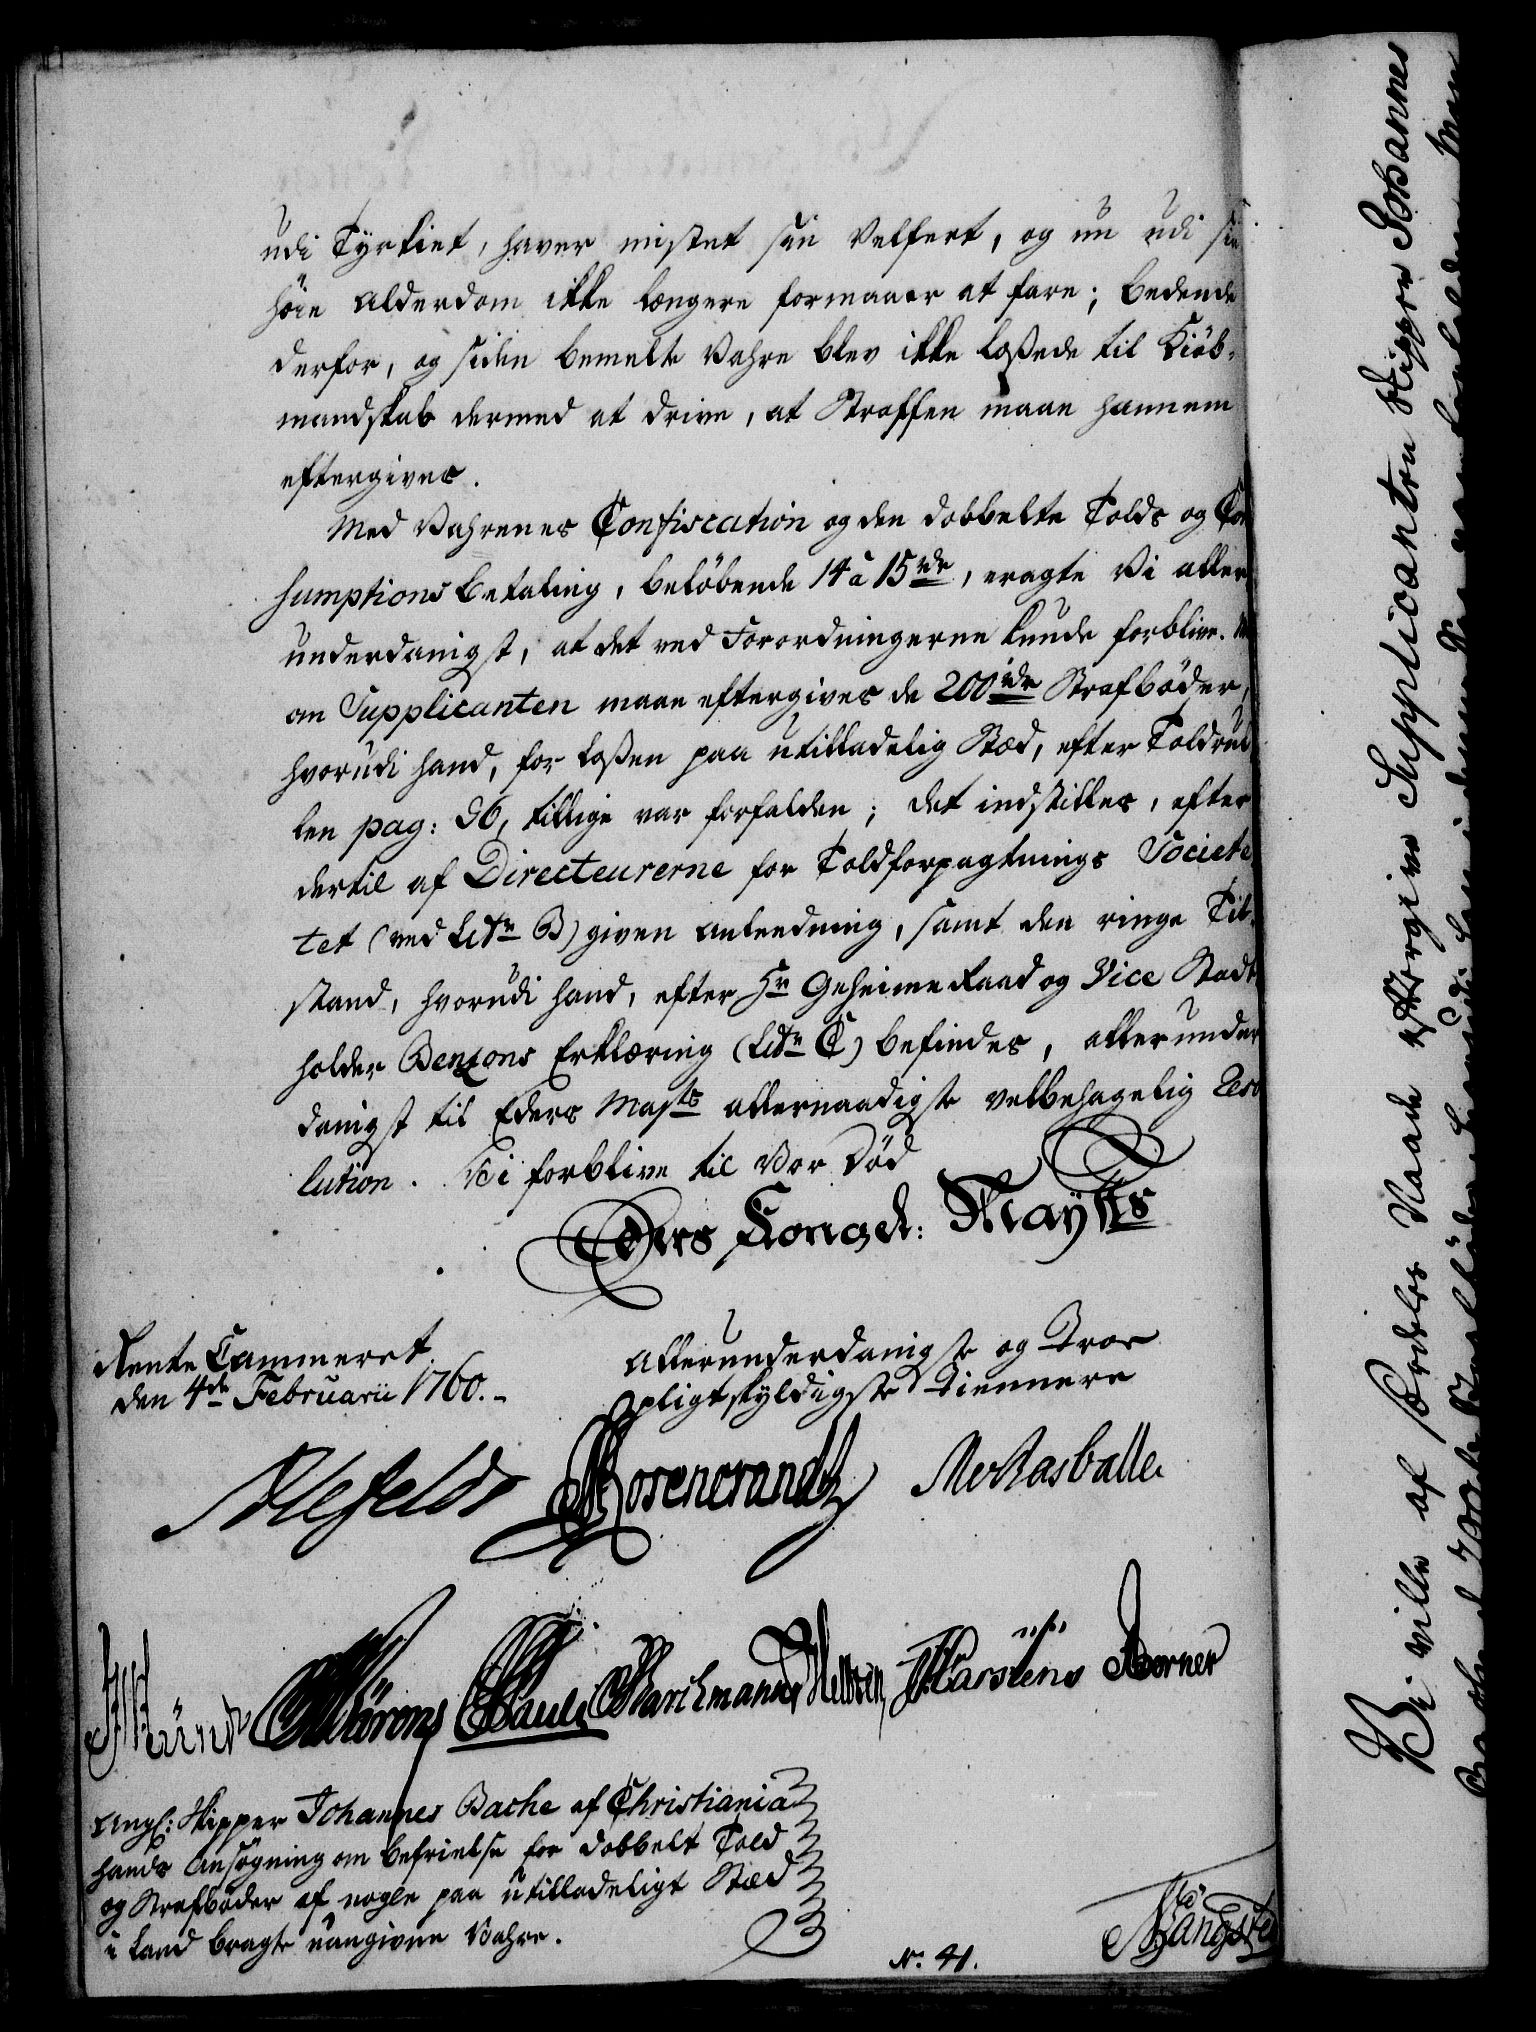 udi Tyrkiet, haver mistet sin Velfert, og nu udi sin
höie Alderdom ikke længere formaaer at fare; bedende
derfor, og siden bemelte Vahre blev ikke loßede til Kiöb-
mandskab dermed at drive, at Straffen maae hannem
eftergives.
Med Vahrenes Confiscation og den dobbelte Tolds og Con
sumptions betaling, belöbende 14 à 15 rdr, eragte Vi aller
underdanigst, at det ved Forordningerne kunde forblive. Men
om Supplicanten maae eftergives de 200 rdr Strafböder,
hvorudi hand, for loßen paa utilladelig Stæd, efter Toldrul
len pag: 96, tillige var forfalden; det indstilles, efter
dertil af Directeurerne for Toldforpagtnings Societe
tet (ved Litr B) given anleedning, samt den ringe Til-
stand, hvorudi hand, efter Hr Geheime Raad og Vice Stadt
holder Benzons Erklæring (Litr C) befindes, allerunder
danigst til Eders Majts allernaadigste velbehagelig Reso
lution. Vi forblive til Vor Död
Eders Kongel: Mayts
Rente Cammeret
den 4de Februarii 1760.
Allerunderdanigste og Troe
pligtskyldigste Tiennere
Ahlefeldt Rosencrandtz
Pauli Barchmann Karstens Berner
Ang: Skipper Johannes Bache af Christiania
hands Ansögning om befrielse for dobbelt Told
og Strafböder af nogle paa utilladeligt Stæd
i Land bragte uangivne Vahre.
No. 41.
Vi ville af særdeles Naade eftergive Supplicanten Skipper Johannes